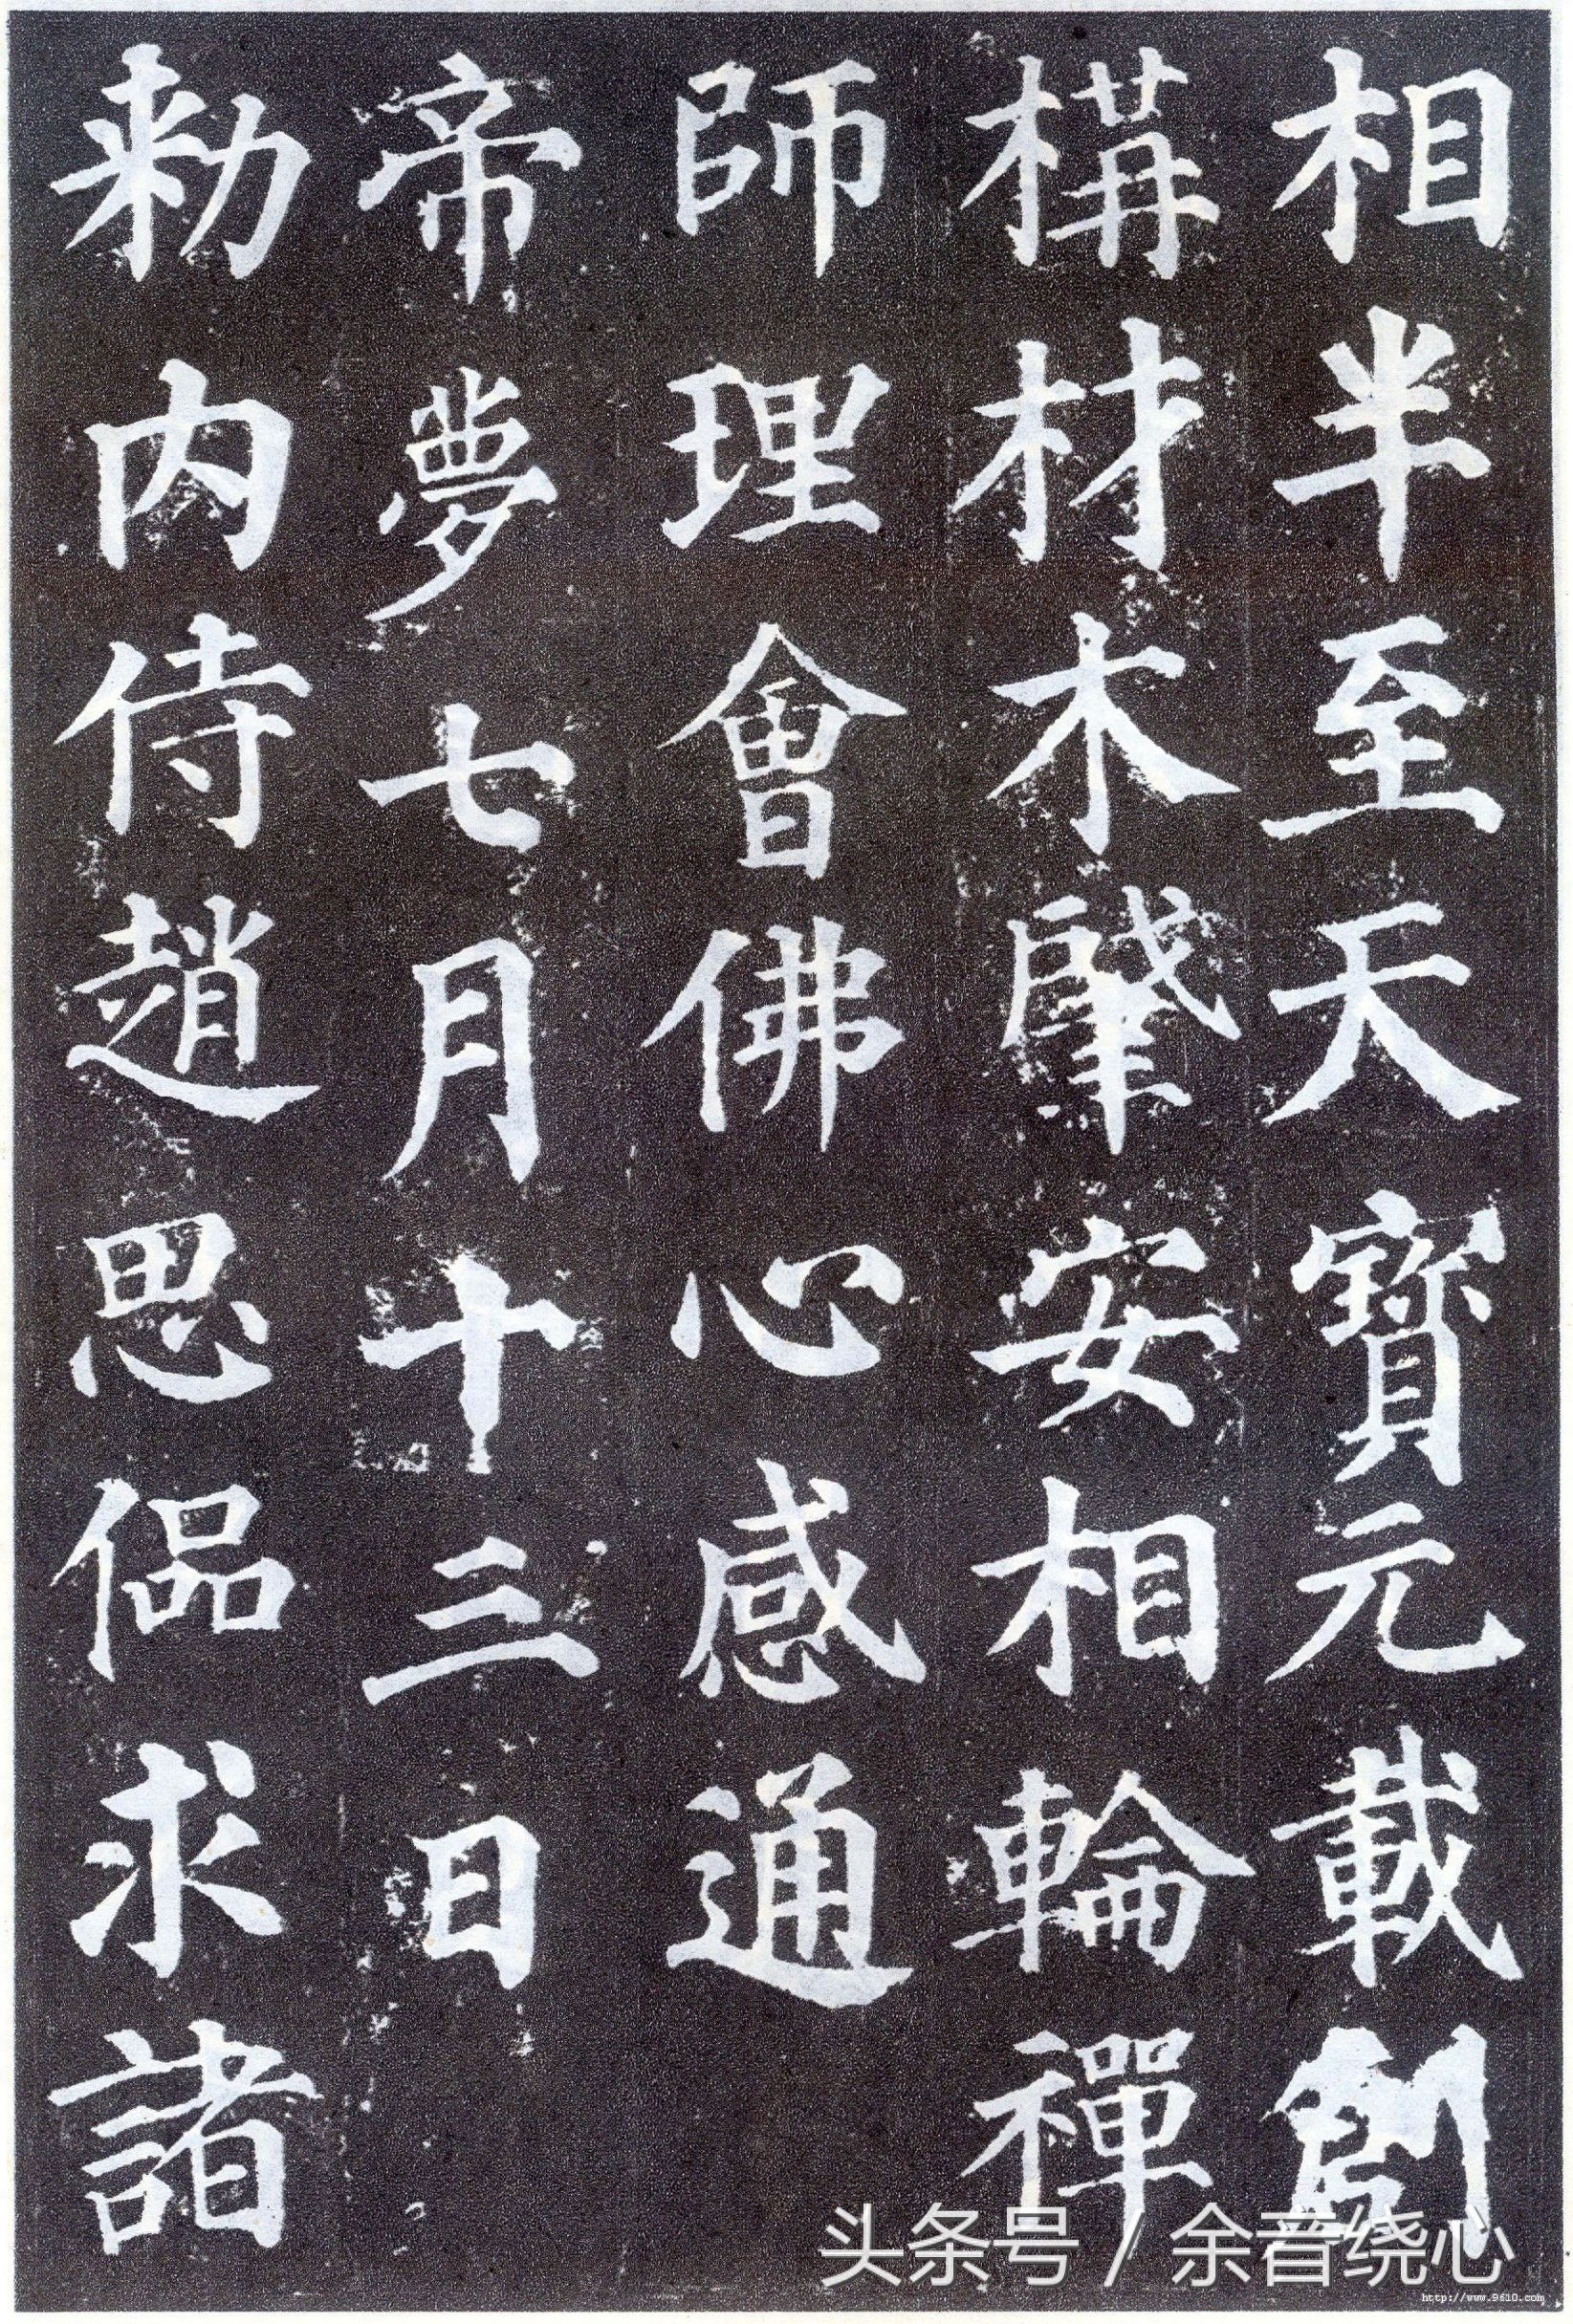 相半至天寶元載創
構材木肇安相輪禪
師理會佛心感通
帝夢七月十三日
勑内侍趙思偘求諸
头条号 / 余音绕心
http://www.9610.com